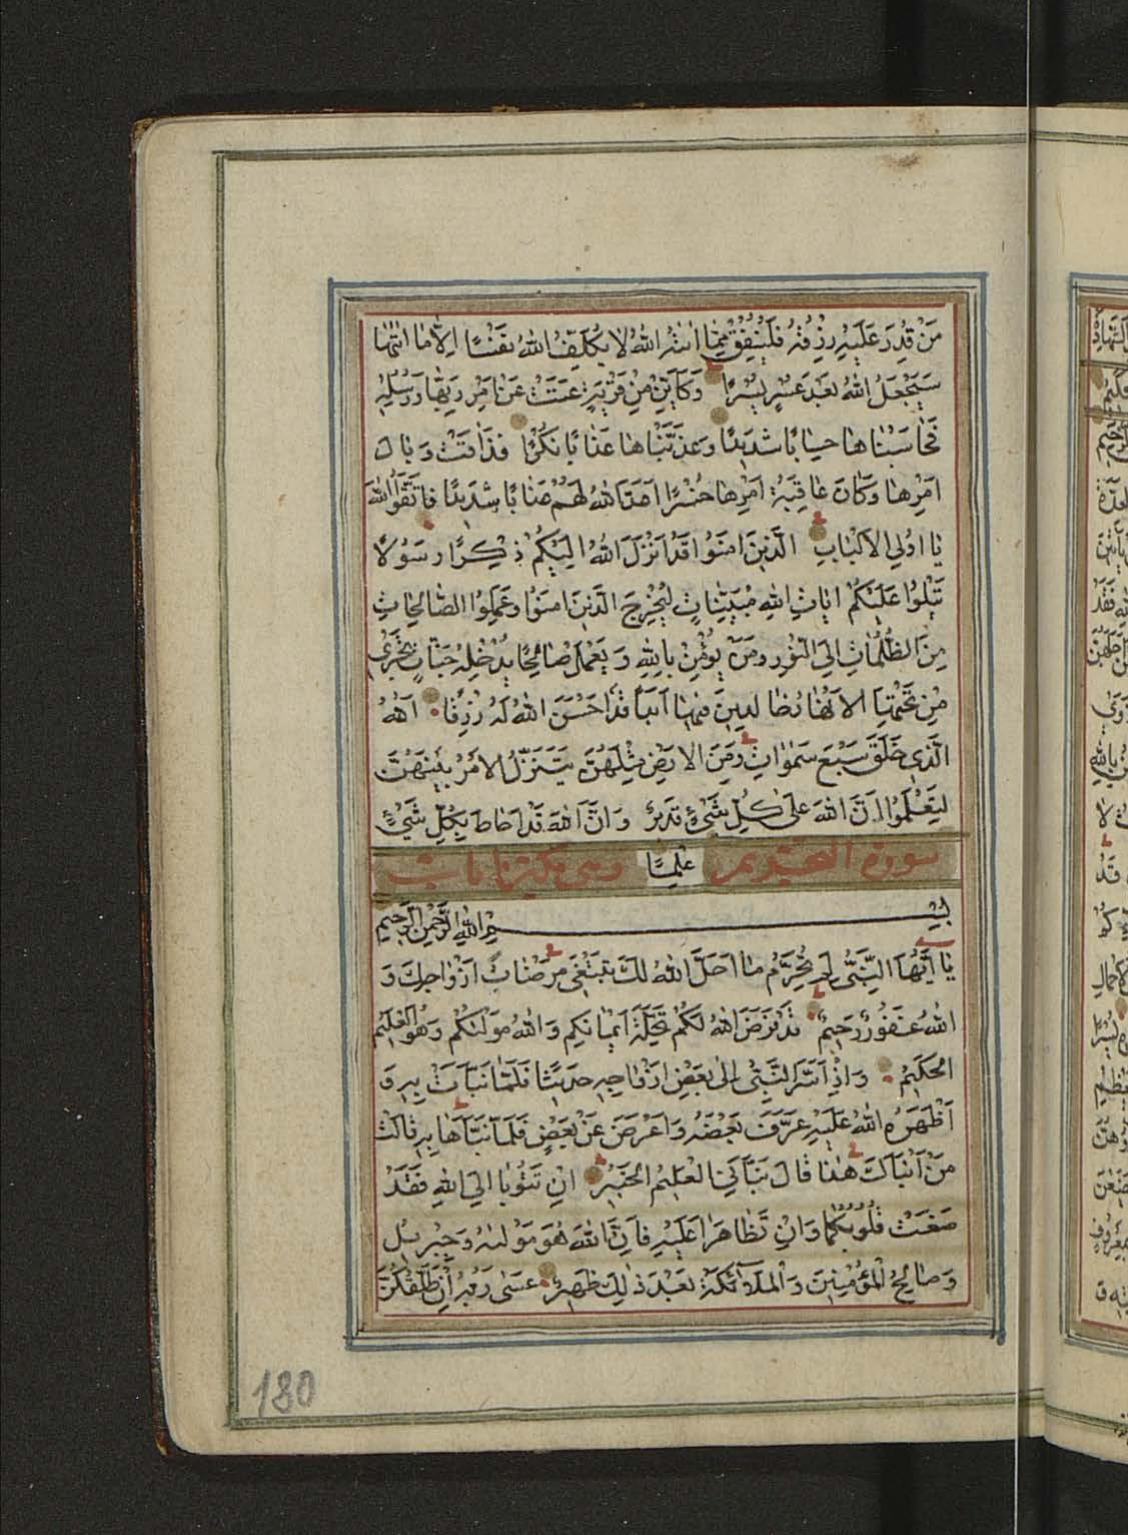 مَنْ قُدِرَ عَلَيْهِ رِزْقُهُ فَلْيُنْفِقْ مِمَّا اٰتٰهُ اللّٰهُ لَا يُكَلِّفُ اللّٰهُ نَفْسًا اِلَّا مَا اٰتٰهَا
سَيَجْعَلُ اللّٰهُ بَعْدَ عُسْرٍ يُسْرًا وَكَاَيِّنْ مِنْ قَرْيَةٍ عَتَتْ عَنْ اَمْرِ رَبِّهَا وَرُسُلِهٖ
فَحَاسَبْنَاهَا حِسَابًا شَدِيدًا وَعَذَّبْنَاهَا عَذَابًا نُكْرًا فَذَاقَتْ وَبَالَ
اَمْرِهَا وَكَانَ عَاقِبَةُ اَمْرِهَا خُسْرًا اَعَدَّ اللّٰهُ لَهُمْ عَذَابًا شَدِيدًا فَاتَّقُوا اللّٰهَ
يَا اُولِي الْاَلْبَابِ الَّذِينَ اٰمَنُوا قَدْ اَنْزَلَ اللّٰهُ اِلَيْكُمْ ذِكْرًا رَسُولًا
يَتْلُوا عَلَيْكُمْ اٰيَاتِ اللّٰهِ مُبَيِّنَاتٍ لِيُخْرِجَ الَّذِينَ اٰمَنُوا وَعَمِلُوا الصَّالِحَاتِ
مِنَ الظُّلُمَاتِ اِلَى النُّورِ وَمَنْ يُؤْمِنْ بِاللّٰهِ وَيَعْمَلْ صَالِحًا يُدْخِلْهُ جَنَّاتٍ تَجْرِي
مِنْ تَحْتِهَا الْاَنْهَارُ خَالِدِينَ فِيهَا اَبَدًا قَدْ اَحْسَنَ اللّٰهُ لَهُ رِزْقًا اَللّٰهُ
الَّذِي خَلَقَ سَبْعَ سَمٰوَاتٍ وَمِنَ الْاَرْضِ مِثْلَهُنَّ يَتَنَزَّلُ الْاَمْرُ بَيْنَهُنَّ
لِتَعْلَمُوا اَنَّ اللّٰهَ عَلٰى كُلِّ شَيْءٍ قَدِيرٌ وَاَنَّ اللّٰهَ قَدْ اَحَاطَ بِكُلِّ شَيْءٍ
سورة التحريم عِلْمًا وهي
بِسْمِ اللّٰهِ الرَّحْمٰنِ الرَّحِيمِ
يَا اَيُّهَا النَّبِيُّ لِمَ تُحَرِّمُ مَا اَحَلَّ اللّٰهُ لَكَ تَبْتَغِي مَرْضَاتَ اَزْوَاجِكَ وَ
اللّٰهُ غَفُورٌ رَحِيمٌ قَدْ فَرَضَ اللّٰهُ لَكُمْ تَحِلَّةَ اَيْمَانِكُمْ وَاللّٰهُ مَوْلٰيكُمْ وَهُوَ الْعَلِيمُ
الْحَكِيمُ وَاِذْ اَسَرَّ النَّبِيُّ اِلٰى بَعْضِ اَزْوَاجِهٖ حَدِيثًا فَلَمَّا نَبَّاَتْ بِهٖ وَ
اَظْهَرَهُ اللّٰهُ عَلَيْهِ عَرَّفَ بَعْضَهُ وَاَعْرَضَ عَنْ بَعْضٍ فَلَمَّا نَبَّاَهَا بِهٖ قَالَتْ
مَنْ اَنْبَاَكَ هٰذَا قَالَ نَبَّاَنِيَ الْعَلِيمُ الْخَبِيرُ اِنْ تَتُوبَا اِلَى اللّٰهِ فَقَدْ
صَغَتْ قُلُوبُكُمَا وَاِنْ تَظَاهَرَا عَلَيْهِ فَاِنَّ اللّٰهَ هُوَ مَوْلٰيهُ وَجِبْرِيلُ
وَصَالِحُ الْمُؤْمِنِينَ وَالْمَلٰٓئِكَةُ بَعْدَ ذٰلِكَ ظَهِيرٌ عَسٰى رَبُّهُ اِنْ طَلَّقَكُنَّ
180